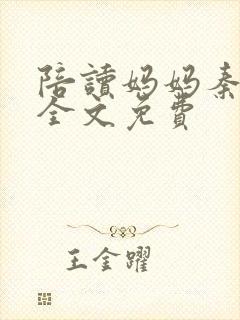 陪讀妈妈秦
全文免費
王金躍